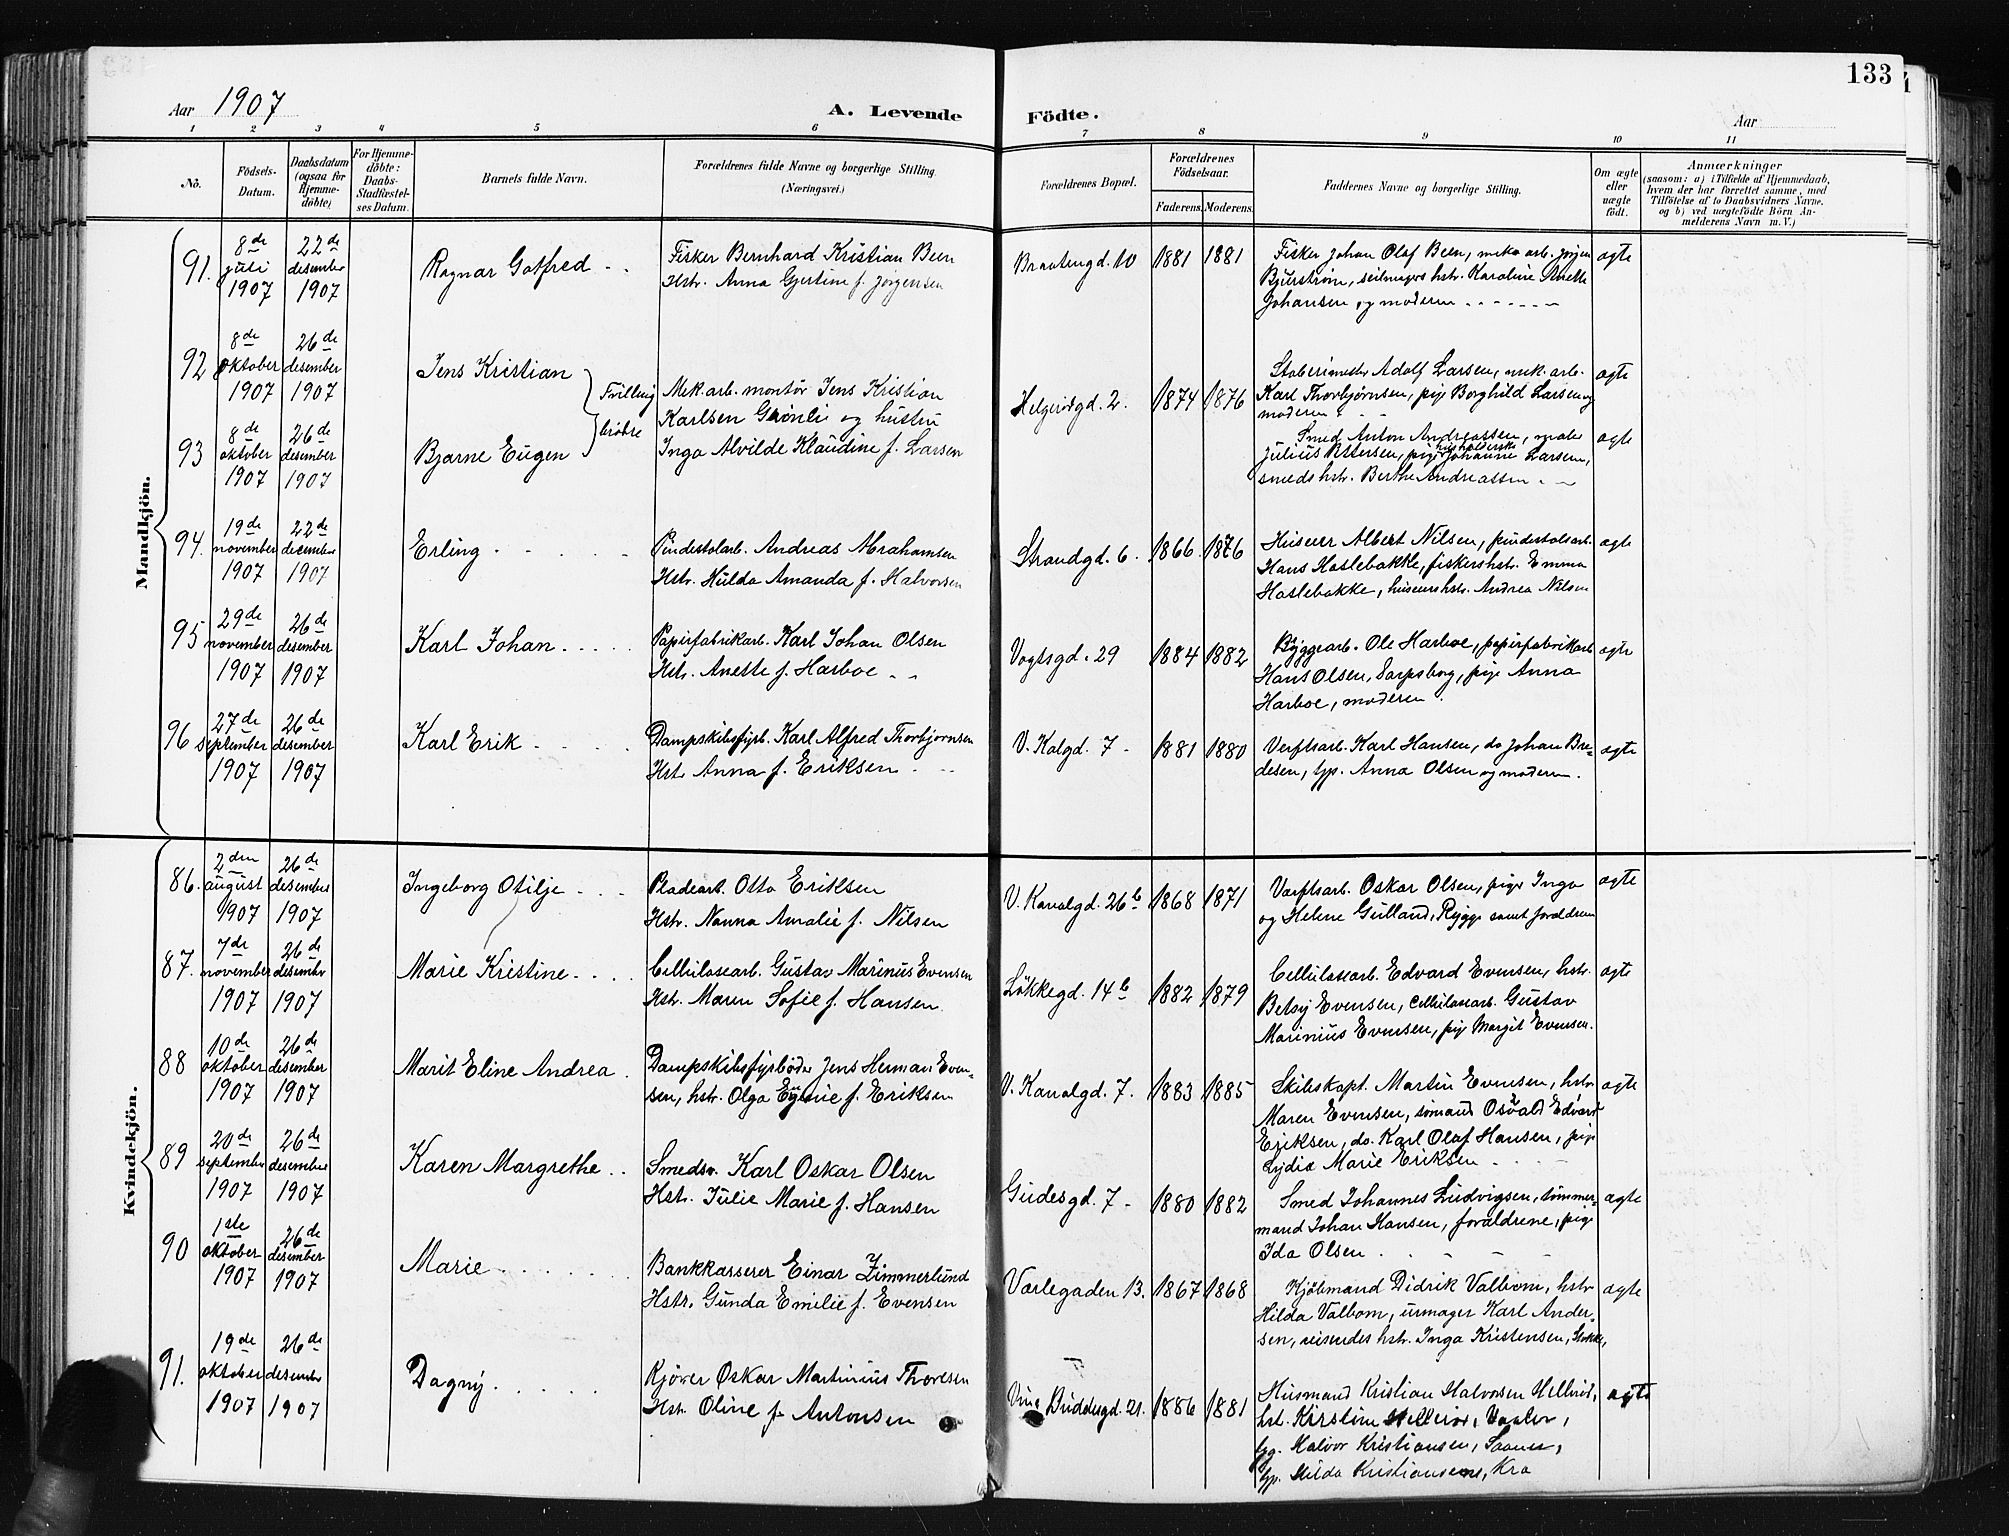 133
Aar 1907
A. Levende Födte.
Aar
1 2 3 4 5 6 7 8 9 10 11
No.
Födsels-Datum.
Daabsdatum (ogsaa for Hjemme-döbte)
For Hjemme-döbte: Daabs-Stadfæstel-ses Datum.
Barnets fulde Navn.
Forældrenes fulde Navne og borgerlige Stilling (Næringsvei.)
Forældrenes Bopæl.
Forældrenes Födselsaar.
Faderens. Moderens.
Faddernes Navne og borgerlige Stilling.
Om ægte eller uægte födt.
Anmærkninger
(saasom: a) i Tilfælde af Hjemmedaab,
hvem der har forrettet samme, med
Tilföielse af to Daabsvidners Navne.
og b) ved uægtefödte Börn An-
melderens Navn m. V.)
Mandkjön.
91. 8de juli 1907 22de desember 1907 Ragnar Gotfred
Fisker Bernhard Kristian Been
Hstr. Anna Gjertine f. Jørgensen
Brautengd. 10 1881 1881
Fisker Johan Olaf Been, mek. arb. Jørgen
Bjürstrøm, seilmagers hstr. Karoline Anette
Johansen og moderen
ægte
92 8de oktober 1907 26de desember 1907 Jens Kristian
93 8de oktober 1907 26de desember 1907 Bjarne Eugen
Tvilling brødre
Mek. arb. montør Jens Kristian
Karlsen Grønli og hustru
Inga Alvilde Klaudine f. Larsen
Helgerødgd. 2. 1874 1876
Støberimestr Adolf Larsen, mek. arb.
Karl Thorbjørnsen, pige Borghild Larsen og
moderen
ægte
Smed Anton Andreassen, maler
Julius Pettersen, pige husholderske Johanne Larsen,
smeds hstr. Berthe Andreassen
ægte
94. 19de november 1907 22de desember 1907 Erling
Pindestolarb. Andreas Abrahamsen
Hstr. Hulda Amanda f. Halvorsen
Strandgd. 6. 1866 1876
Huseier Albert Nilsen, pindestolsarb.
Hans Haslebakke, fiskers hstr. Emma
Haslebakke, huseiers hstr. Andrea Nilsen
ægte
95 29de november 1907 26de desember 1907 Karl Johan
Papirfabrikarb. Karl Johan Olsen
Hstr. Anette f. Harboe
Vogtsgd. 29 1884 1882
Byggearb. Ole Harboe, papirfabrikarb
Hans Olsen, Sarpsborg, pige Anna
Harboe, moderen
ægte
96 27de september 1907 26de desember 1907 Karl Erik
Dampskibsfyrb. Karl Alfred Thorbjørnsen
Hstr Anna f. Eriksen
V. Kalgd. 7 1881 1880
Verftsarb. Karl Hansen, do Johan Bre-
desen, tjp. Anna Olsen og moderen.
ægte
Kvindekjön.
86. 2den august 1907 26de desember 1907 Ingeborg Otilje
Pladearb. Otto Eriksen
Hstr. Nanna Amalie f. Nilsen
V. Kanalgd. 26b 1868 1871
Værftsarb. Oskar Olsen, pige Inga
og Helene Gulland, Rygge samt forældrene
ægte
87. 7de november 1907 26de desember 1907 Marie Kristine
Cellulosearb. Gustav Marinus Evensen
Hstr. Maren Sofie f. Hansen
Løkkegd. 14b 1882 1879
Cellulosearb. Edvard Evensen, hstr.
Betsy Evensen, Cellulosearb. Gustav
Marinius Evensen, pige Margit Evensen.
ægte
88 10de oktober 1907 26de desember 1907 Marit Eline Andrea
Dampskibsfyrbøder Jens Herman Even-
sen, hstr. Olga f. Eriksen
V. Kanalgd. 7. 1883 1885
Skibskapt. Martin Evensen, hstr
Maren Evensen, sømand Osvald Edvard
Eriksen, do. Karl Olaf Hansen, pige
Lydia Marie Eriksen
ægte
89 20de september 1907 26de desember 1907 Karen Margrethe
Smedsv. Karl Oskar Olsen
Hstr. Julie Marie f. Hansen
Gudesgd. 7 1880 1882
Smed Johannes Ludvigsen, tømmer-
mand Johan Hansen, forældrene, pige
Ida Olsen
ægte
90 1ste oktober 1907 26de desember 1907 Marie
Bankkasserer Einar Zimmerlund
Hstr. Gunda Emilie f. Evensen
Varlegaden 13. 1867 1868
Kjøbmand Didrik Valbom, hstr
Hilda Valbom, urmager Karl Ander-
sen, reisendes hstr. Inga Kristensen,
ægte
91. 19de oktober 1907 26de desember 1907 Dagny
Kjører Oskar Martinius Thoresen
Hstr. Oline f. Antonsen
Buddesgd. 21. 1886 1881
Husmand Kristian Halvorsen Hellerød,
hst. Kirstine Hellerød, Vaaler,
tjg. Halvor Kristiansen, Saaner,
tjp. Hilda Kristiansen, Kra
ægte